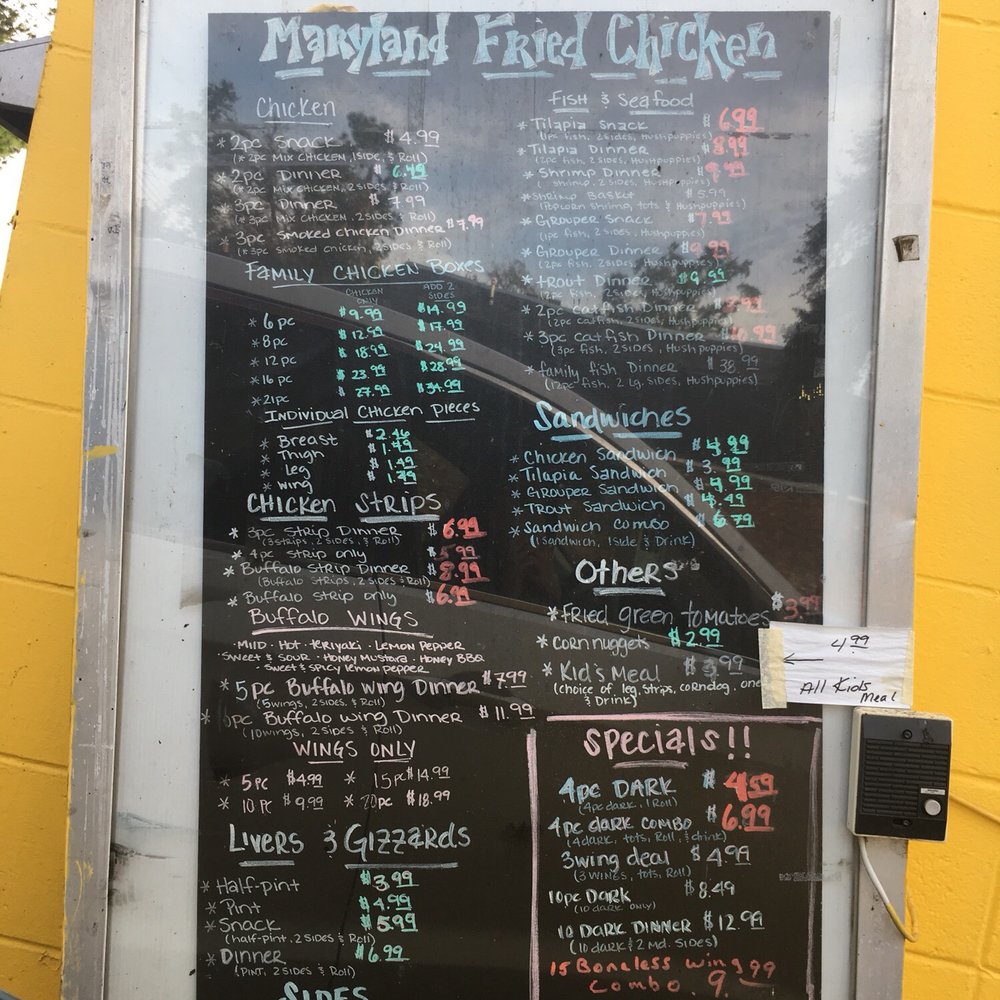 Maryland Fried Chicken
Chicken
* 2pc Snack $4.99
(*2pc Mix Chicken, 1 Side, & Roll)
* 2pc Dinner $ 6.49
(*2pc Mix Chicken, 2 Sides & Roll)
* 3pc Dinner $7.99
(*3pc Mix Chicken, 2 Sides & Roll)
* 3pc Smoked Chicken Dinner $7.99
(*3pc Smoked Chicken, 2 Sides & Roll)
Family Chicken Boxes
Chicken Only Add 2 Sides
* 6 pc $9.99 $14.99
* 8pc $12.99 $17.99
* 12pc $18.99 $24.99
* 16pc $23.99 $28.99
* 21pc $27.99 $34.99
Individual Chicken Pieces
* Breast $2.46
* Thigh $1.49
* Leg $1.49
* Wing $1.49
Chicken Strips
* 3pc Strip Dinner $6.99
(3 strips, 2 Sides, & Roll)
* 4pc Strip only $5.99
* Buffalo Strip Dinner $8.99
(Buffalo Strips, 2 Sides & Roll)
* Buffalo Strip only $6.99
Buffalo Wings
Mild · Hot · Teriyaki · Lemon Pepper
Sweet & Sour · Honey Mustard · Honey BBQ
· Sweet & Spicy Lemon Pepper
* 5 pc Buffalo Wing Dinner $7.99
(5 wings, 2 Sides, & Roll)
* 0pc Buffalo Wing Dinner $11.99
(10 wings, 2 Sides & Roll)
Wings Only
* 5pc $4.99 * 15pc $14.99
* 10 pc $9.99 * 20pc $18.99
Livers & Gizzards
* Half-pint $3.99
* Pint $4.99
* Snack $5.99
(half-pint, 2 Sides & Roll)
* Dinner $6.99
(Pint, 2 Sides & Roll)
Sides
Fish & Seafood
* Tilapia Snack $6.99
(1pc fish, 2 Sides, Hushpuppies)
* Tilapia Dinner 8.99
(2pc fish, 2 Sides, Hushpuppies)
* Shrimp Dinner $9.49
( shrimp, 2 Sides, Hushpuppies)
* Shrimp Basket $5.99
(Popcorn shrimp, tots & Hushpuppies)
* Grouper Snack $7.99
(1pc fish, 2 Sides, Hushpuppies)
* Grouper Dinner $9.99
(2pc fish, 2 Sides, Hushpuppies)
* Trout Dinner $9.99
(2pc fish, 2 Sides, Hushpuppies)
* 2pc Catfish Dinner
(2pc Catfish, 2 Sides, Hushpuppies)
* 3pc Catfish Dinner $10.99
(3pc fish, 2 Sides, Hushpuppies)
* Family Fish Dinner $38.99
(12pc fish, 2 Lg. Sides, Hushpuppies)
Sandwiches
* Chicken Sandwich $4.99
* Tilapia Sandwich $3.99
* Grouper Sandwich $4.99
* Trout Sandwich $4.49
* Sandwich Combo $6.79
(1 Sandwich, 1 Side & Drink)
Others
* Fried green tomatoes $3.99
* Corn nuggets $2.99
* Kid's Meal $3.99
(choice of leg, strips, corndog, one
& Drink)
4.99
All Kids Meal
Specials!!
4pc DARK $4.59
(4pc dark, 1 Roll)
4pc dark combo $6.99
(4 dark, tots, Roll, & drink)
3 wing deal $4.99
(3 wings, tots, Roll)
10pc DARK $8.49
(10 dark only)
10 DARK DINNER $12.99
(10 dark & 2 Md. Sides)
15 Boneless Wing
Combo 9.99